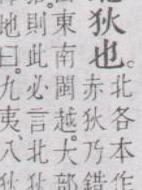 北狄也。北各本作
赤狄乃錯
東南閩越。大部
則此必言北狄
地曰。九夷、八狄